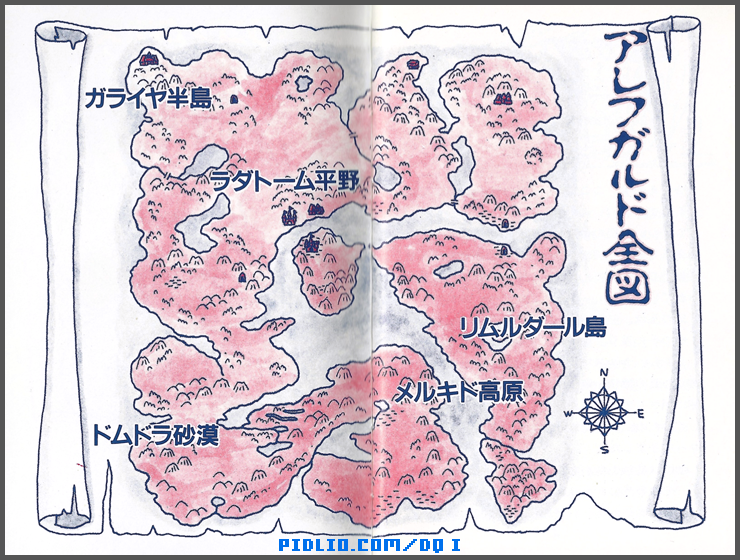 アレフガルド全図
ガライヤ半島
ラダトーム平野
リムルダール島
メルキド高原
ドムドラ砂漠
N
W
E
S
PIDLIO.COM/DQ I